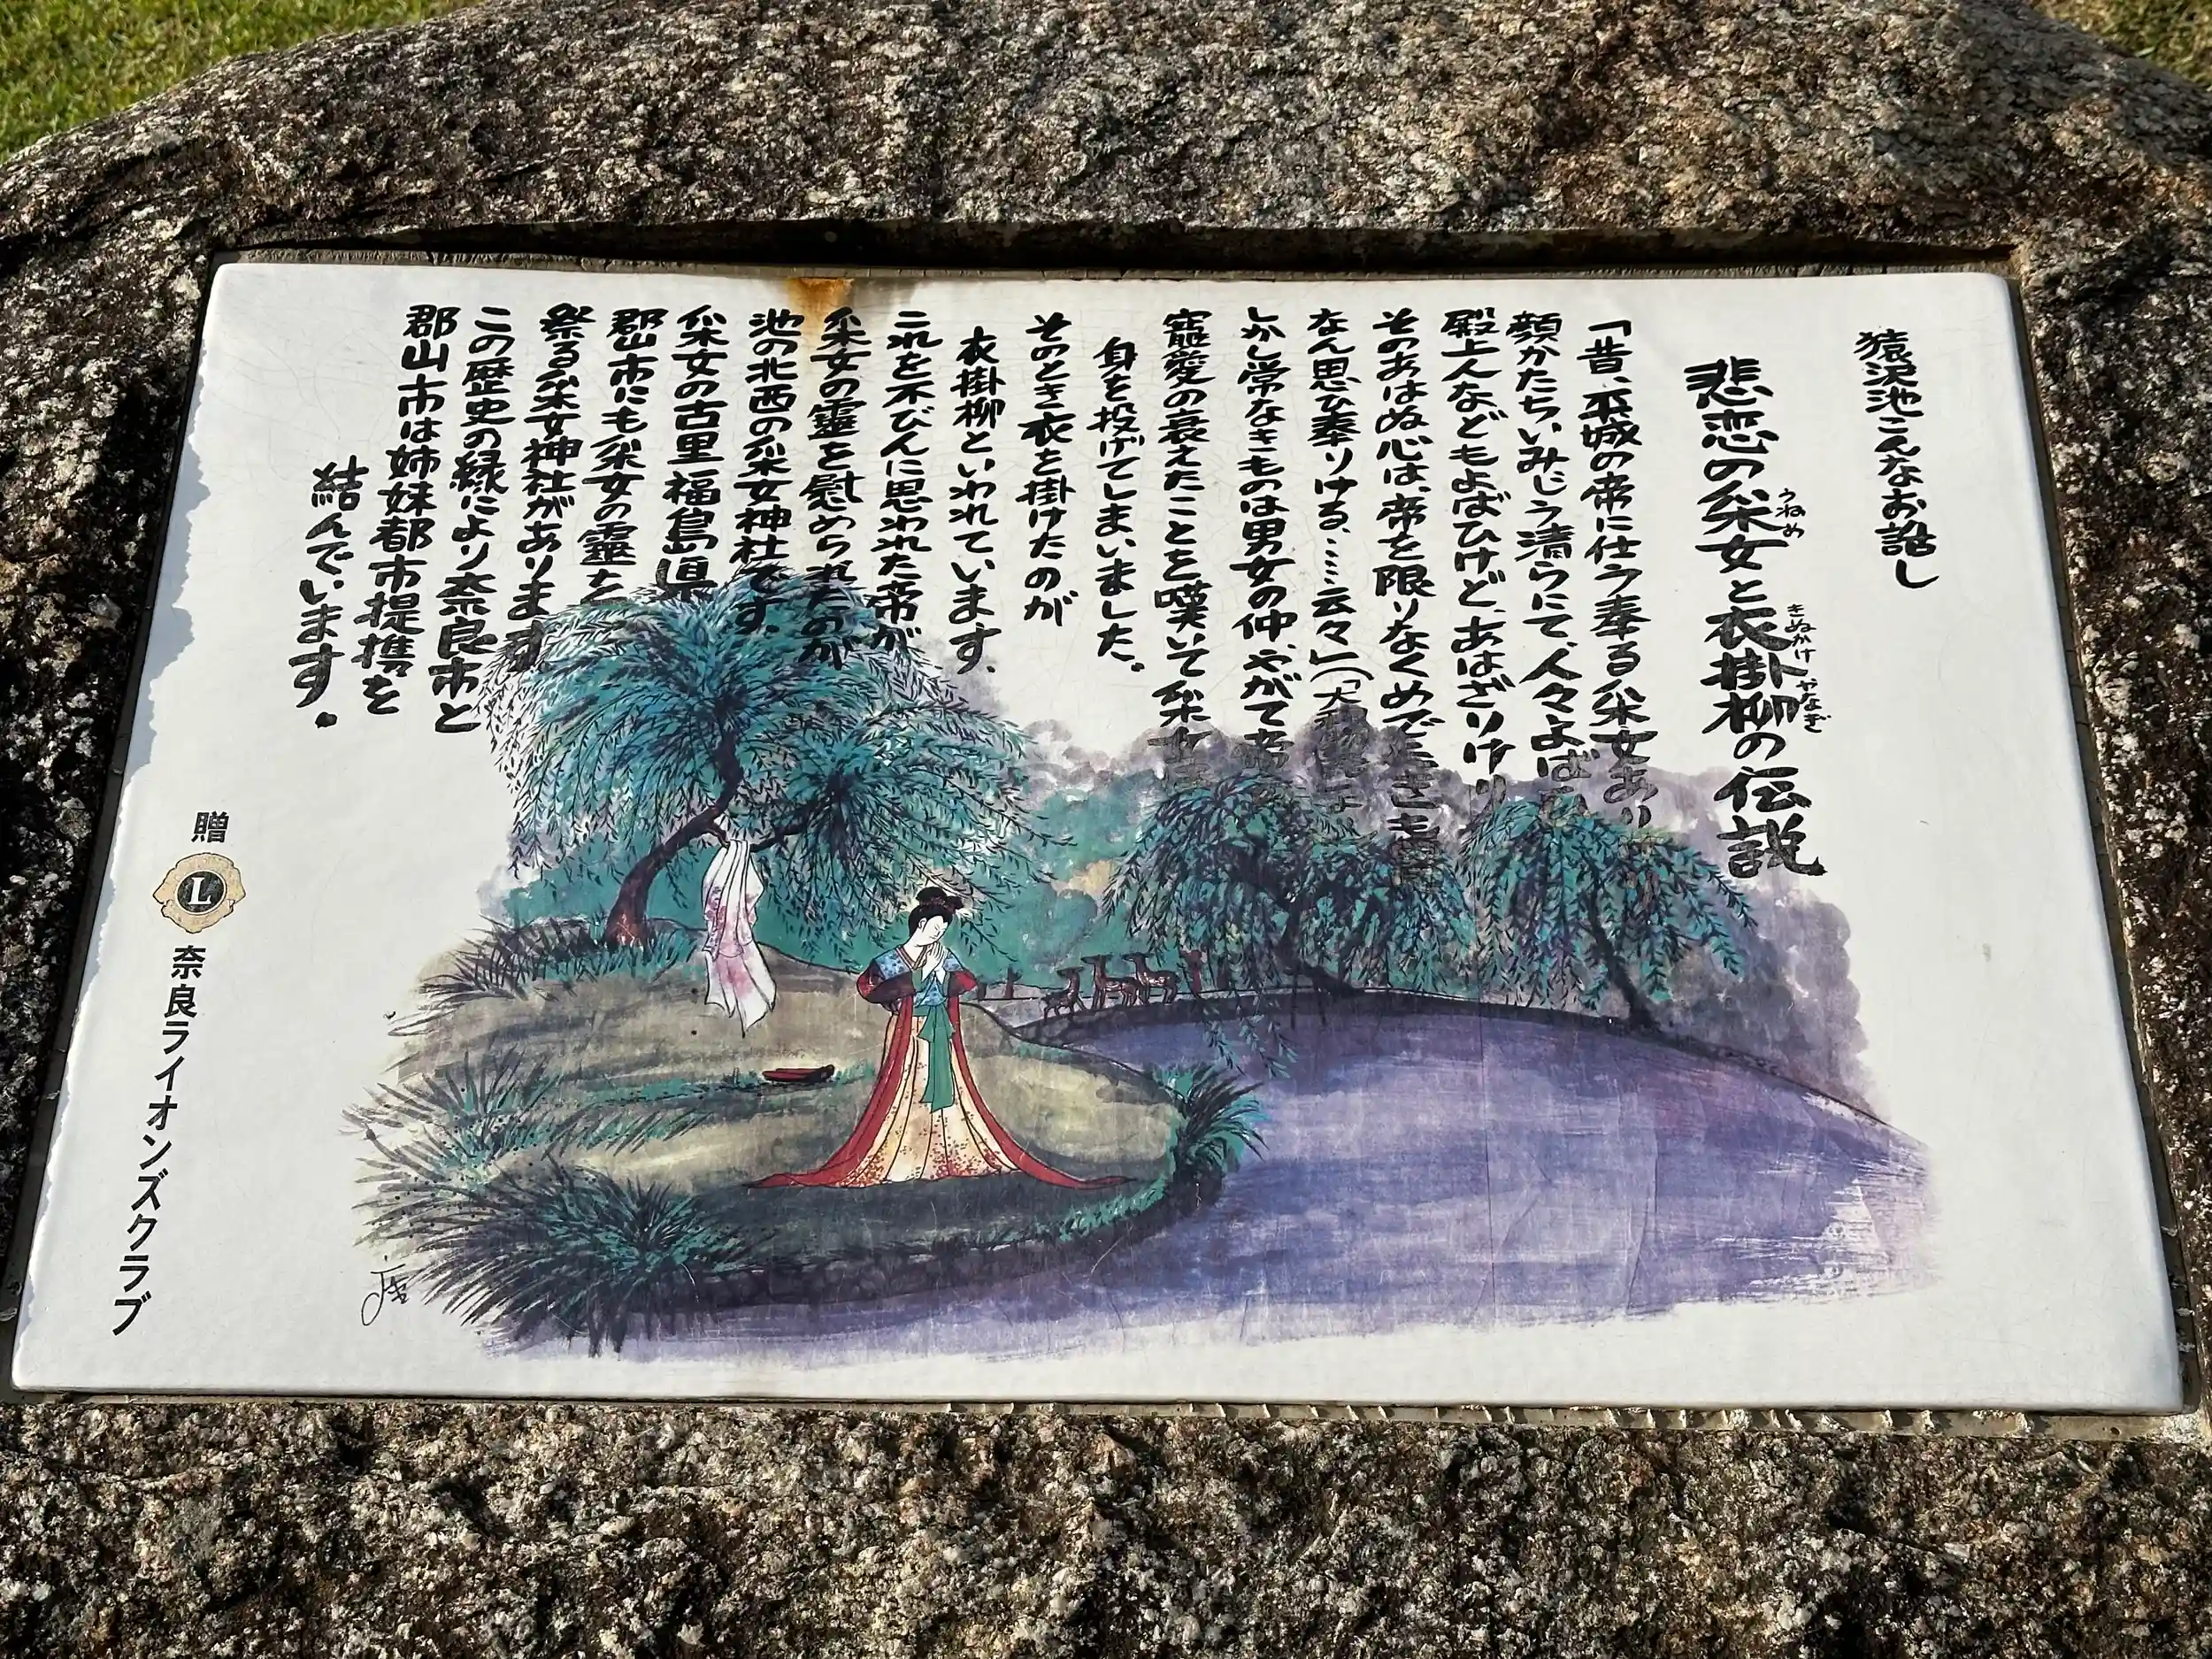 猿沢池こんなお話し
悲恋の采女と衣掛柳の伝説
うねめ
きぬかけ
やなぎ
「昔、平城の帝に仕う奉る采女あり
顔かたちいみじう清らにて、人々よば
殿上人などもよばひけど、あはざりけり
そのあはぬ心は、帝を限りなくめでたき
なん思ひ奉りける、……云々」(「大和
しかし常なきものは男女の仲、やがて帝
寵愛の衰えたことを嘆いて采女は
身を投げてしまいました。
そのとき衣を掛けたのが
衣掛柳といわれています。
これを不びんに思われた帝が
采女の霊を慰められたのが
池の北西の采女神社です。
采女の古里福島県
郡山市にも采女の霊を
祭る采女神社があります
この歴史の縁により奈良市と
郡山市は姉妹都市提携を
結んでいます。
贈
L
奈良ライオンズクラブ